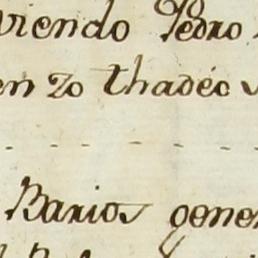 viendo Pedro
en 20 thadéo
Barios gene